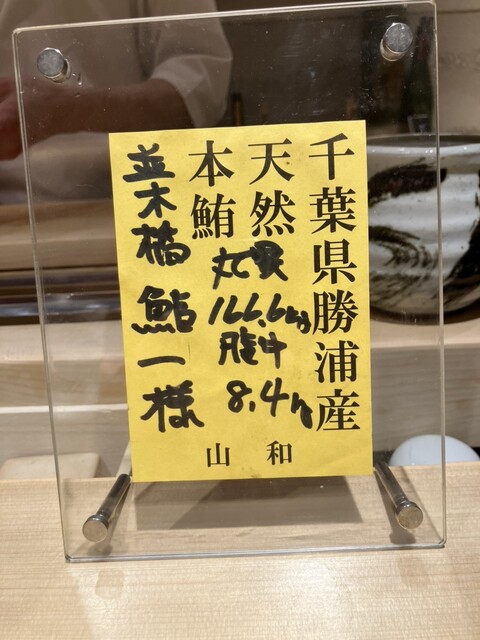 千葉県勝浦産
天然
本鮪
166.6kg
腹中
8.4kg
並木橋
鮎一様
山和